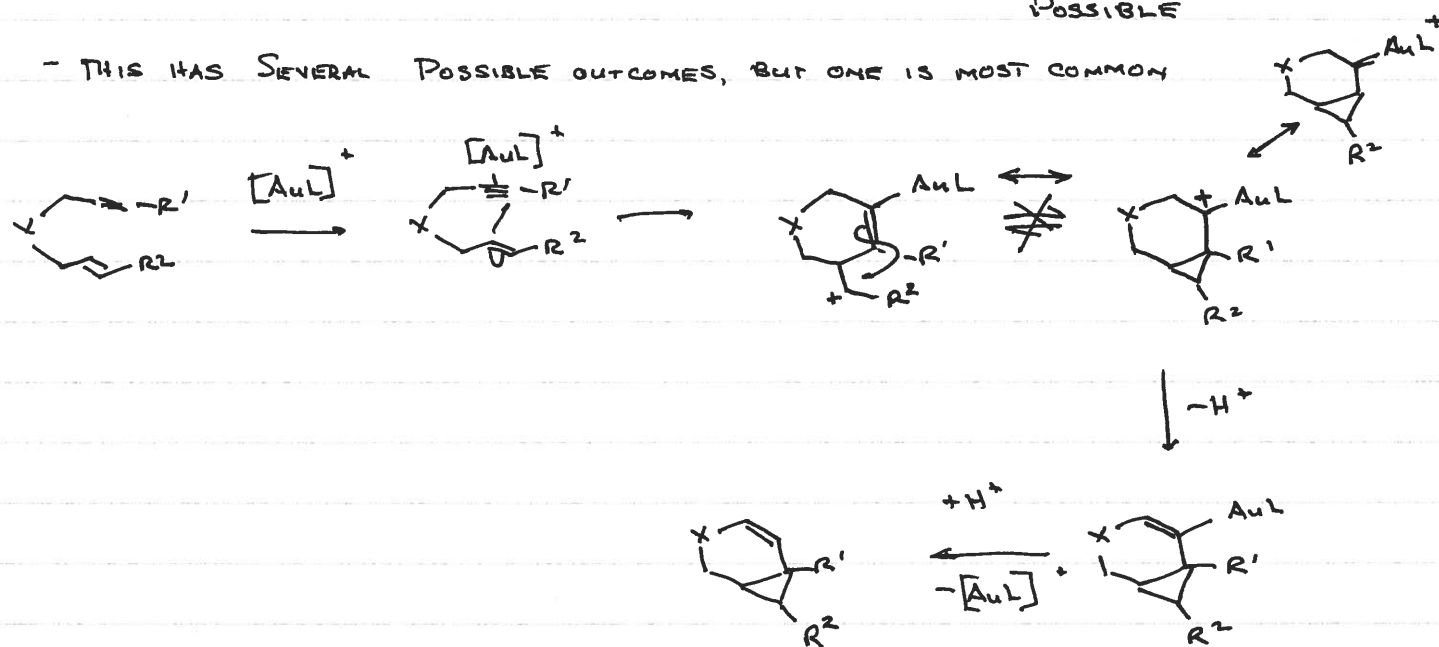 POSSIBLE
- THIS HAS SEVERAL POSSIBLE OUTCOMES, BUT ONE IS MOST COMMON
AuL +
X
R²
[AuL]+
[AuL]+
X R'
R2
X R'
R²
AuL
X
R'
+ R²
+ AuL
X
R'
R²
-H+
+H+
-[AuL]+
X
R'
R²
AuL
X
R'
R²